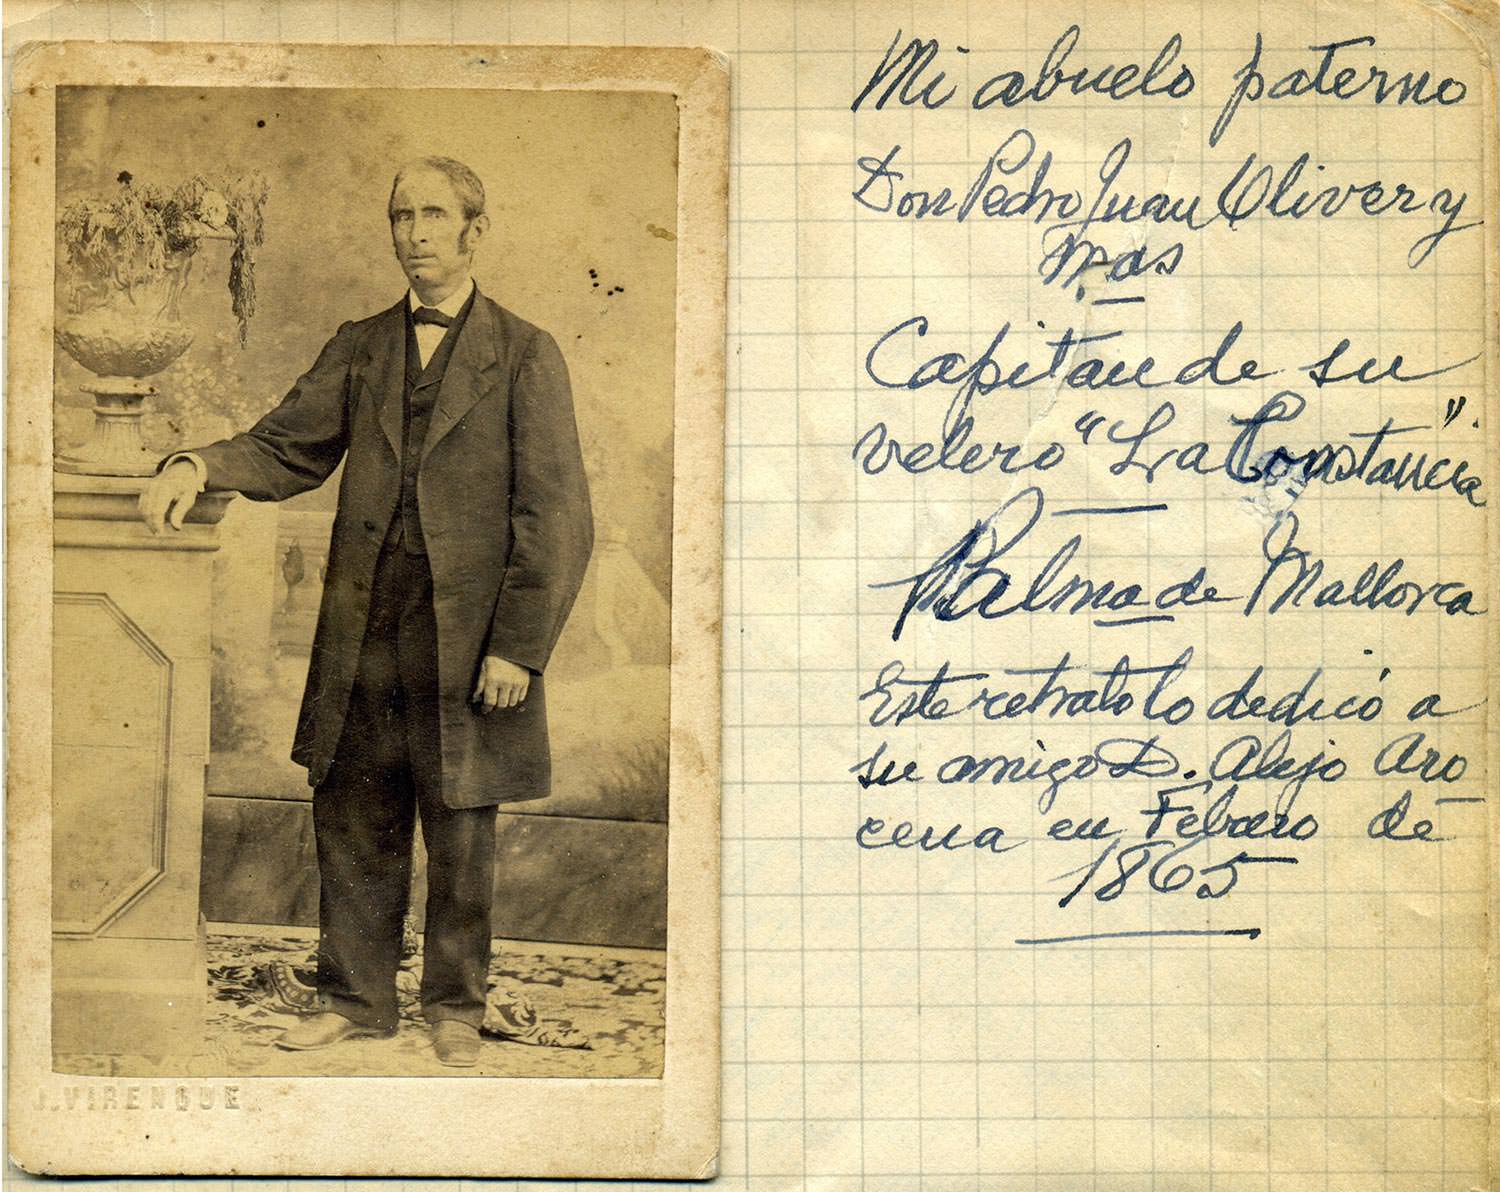 Mi abuelo paterno
Don Pedro Juan Oliver y
Mas
Capitan de su
velero "La Constancia"
Palma de Mallorca
Este retrato lo dedicó a
su amigo D. Alejo Aro
cena en Febrero de
1865
J. VIRENQUE